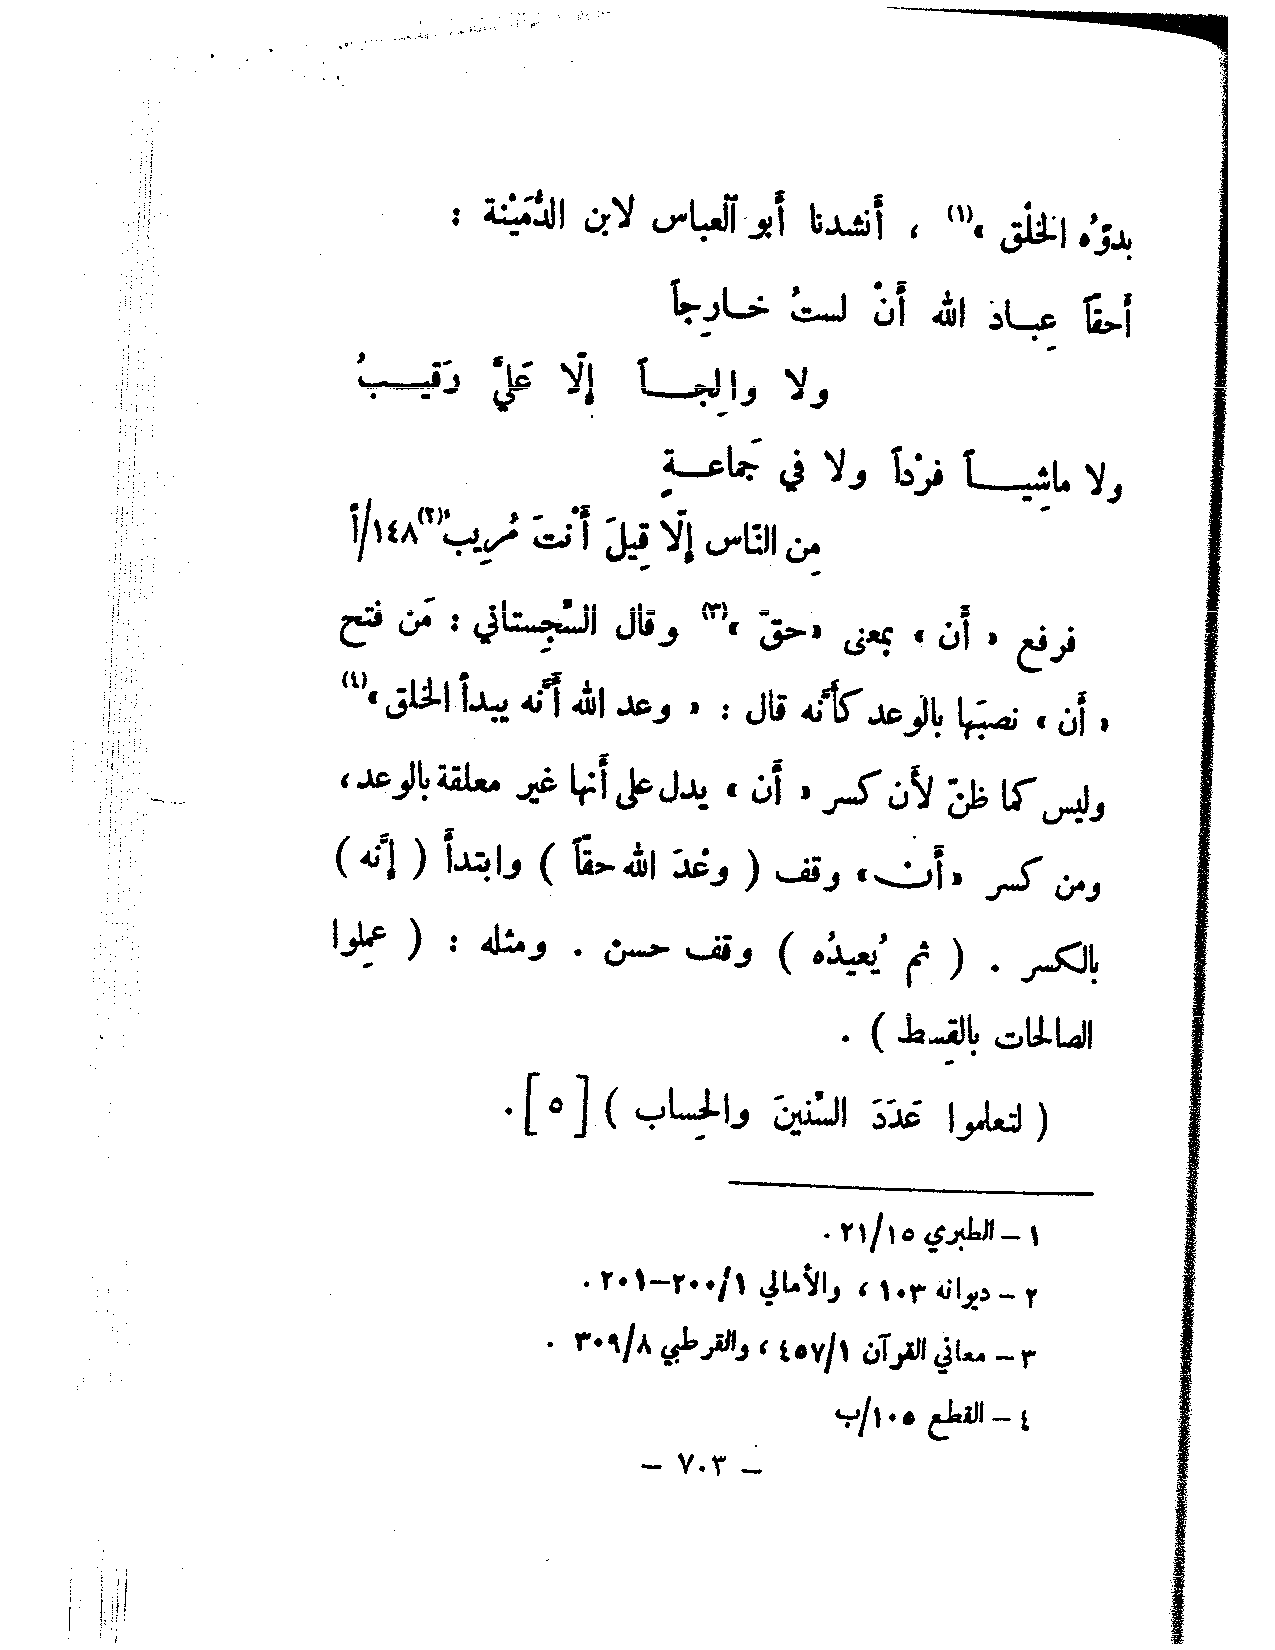 بدوّه الخلْق »(١) ، أنشدنا أبو العباس لابن الدُّمَيْنة :
أحقاً عِبـاد الله أنْ لستُ خـارِجاً
ولا والِجـــاً إلّا عَليَّ رَقيـــبُ
ولا ماشِيـــاً فرْداً ولا في جَماعــةٍ
مِن النّاس إلّا قيلَ أنْتَ مُرِيبُ(٢) ١٤٨/أ
فرفع « أن » بمعنى «حقّ »(٣) وقال السِّجِستاني : مَن فتح
« أن » نصبَها بالوعد كأنّه قال : « وعد الله أنّه يبدأ الخلق »(٤)
وليس كما ظنّ لأن كسر « أن » يدل على أنها غير معلقة بالوعد ،
ومن كسر «أن» وقف ( وعْدَ الله حقاً ) وابتدأ ( إنّه )
بالكسر . ( ثم يُعيدُه ) وقف حسن . ومثله : ( عمِلوا
الصالحات بالقِسط ) .
( لتعلموا عَدَدَ السِّنينَ والحِساب ) [ ٥ ] .
١ – الطبري ٢١/١٥ .
٢ – ديوانه ١٠٣ ، والأمالي ٢٠٠/١–٢٠١ .
٣ – معاني القرآن ٤٥٧/١ ، والقرطبي ٣٠٩/٨ .
٤ – القطع ١٠٥/ب
– ٧٠٣ –